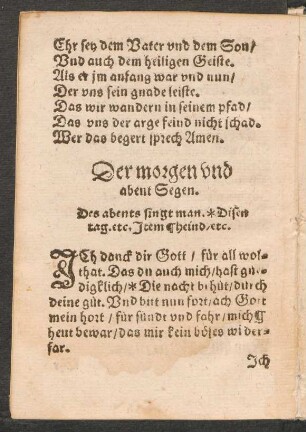 Ehr sey dem Vater vnd dem Son/
Vnd auch dem heiligen Geiste.
Als er jm anfang war vnd nun/
Der vns sein gnade leiste.
Das wir wandern in seinem pfad/
Das vns der arge feind nicht schad.
Wer das begert sprech Amen.
Der morgen vnd
abent Segen.
Des abents singt man. * Disen
tag. etc. Item ¶ heind/etc.
ICh danck dir Gott / für all wol-
that. Das du auch mich/hast gne-
digklich/* Die nacht behüt/durch
deine güt. Vnd bitt nun fort/ach Gott
mein hort / für sünd vnd fahr/mich ¶
heut bewar/das mir kein böses wider-
far.
Ich